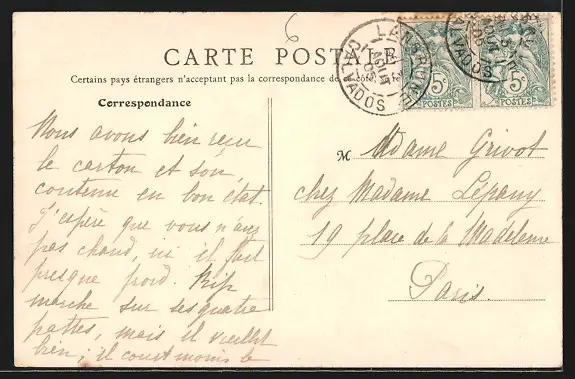 6
CARTE POSTALE
Certains pays étrangers n'acceptent pas la correspondance de
Correspondance
Nous avons bien reçu
le carton et son
contenu en bon état.
J'espère que vous n'avez
pas chaud, ici il fait
presque froid. Rip
marche sur ses quatre
pattes, mais il vieillit
bien; il court moins le
LANGRUNE
CALVADOS
5c 5c
POSTES POSTES
CALVADOS
M Madame Grivot
chez Madame Lépany
19 place de la Madeleine
Paris.